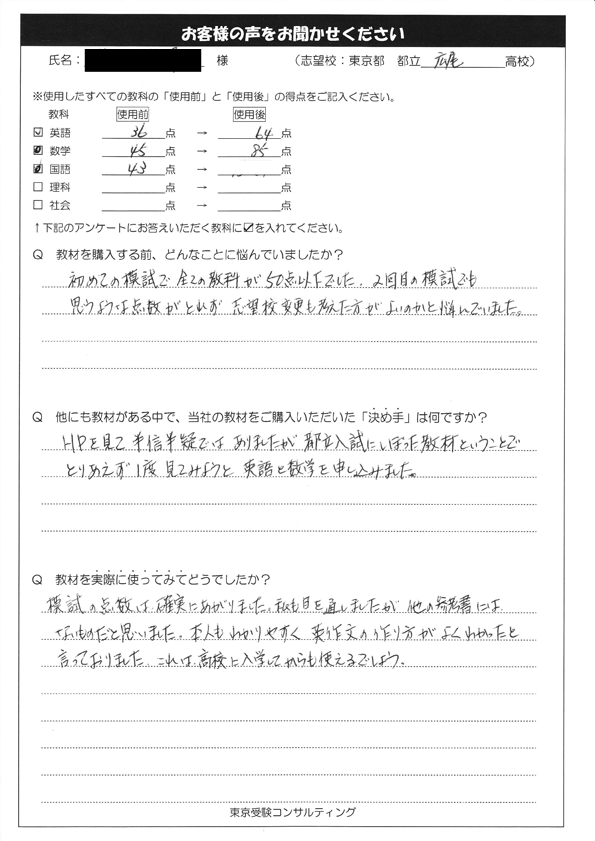 お客様の声をお聞かせください
氏名： 様 （志望校：東京都 都立 広尾 高校）
※使用したすべての教科の「使用前」と「使用後」の得点をご記入ください。
教科 使用前 使用後
☑ 英語 36 点 → 64 点
☑ 数学 45 点 → 85 点
☑ 国語 43 点 → 点
☐ 理科 点 → 点
☐ 社会 点 → 点
↑下記のアンケートにお答えいただく教科に☑を入れてください。
Q 教材を購入する前、どんなことに悩んでいましたか？
初めての模試で全ての教科が50点以下でした。2回目の模試でも
思うような点数がとれず志望校変更も考えた方がよいのかと悩んでいました。
Q 他にも教材がある中で、当社の教材をご購入いただいた「決め手」は何ですか？
HPを見て半信半疑ではありましたが都立入試にしぼった教材ということで
とりあえず1度見てみようと英語と数学を申し込みました。
Q 教材を実際に使ってみてどうでしたか？
模試の点数は確実にあがりました。私も目を通しましたが他の参考書には
ないものだと思いました。本人もわかりやすく英作文の作り方がよくわかったと
言っておりました。これは高校に入学してからも使えるでしょう。
東京受験コンサルティング